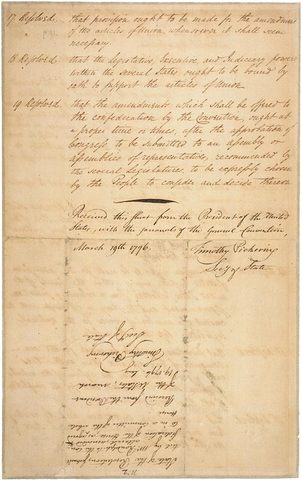 17 Resolved. that provision ought to be made for the amendment
of the articles of Union, whensoever it shall seem
necessary.
18 Resolved. that the legislative, Executive, and Judiciary powers
within the several States ought to be bound by
oath to support the articles of Union
19 Resolved. that the amendments which shall be offered to
the confederation by the Convention, ought at
a proper time or times, after the approbation of
Congress to be submitted to an assembly or
assemblies of representatives, recommended by
the several Legislatures, to be expressly chosen
by the People to consider and decide thereon
Received this sheet from the President of the United
States, with the journals of the General Convention,
March 19th 1796.
Timothy Pickering
Secy of State
State of the Resolutions
by Mr.
to a Committee of the whole
House
Received from the President
of the United States, March
19 1796 by
Timothy Pickering
Secy of State